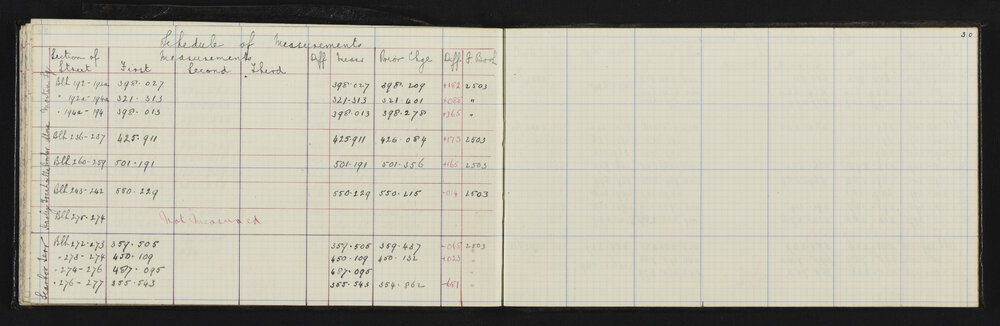 Schedule of Measurements
Section of Street Measurements Diff Meass Prior Chge Diff F. Book
First Second Third
Blk 192-192a 398.027 398.027 398.209 +182 2503
" 192a-194a 321.313 321.313 321.401 +088 "
" 194a-194 398.013 398.013 398.278 +265 "
Blk 236-237 425.911 425.911 426.084 +173 2503
Blk 260-259 501.191 501.191 501.356 +165 2503
Blk 243-242 550.229 550.229 550.215 -014 2503
Blk 275-274 Not Measured
Blk 272-273 359.505 359.505 359.437 -068 2503
" 273-274 450.109 450.109 450.132 +023 "
" 274-276 487.095 487.095 "
" 276-277 355.543 355.543 354.862 -681 "
30